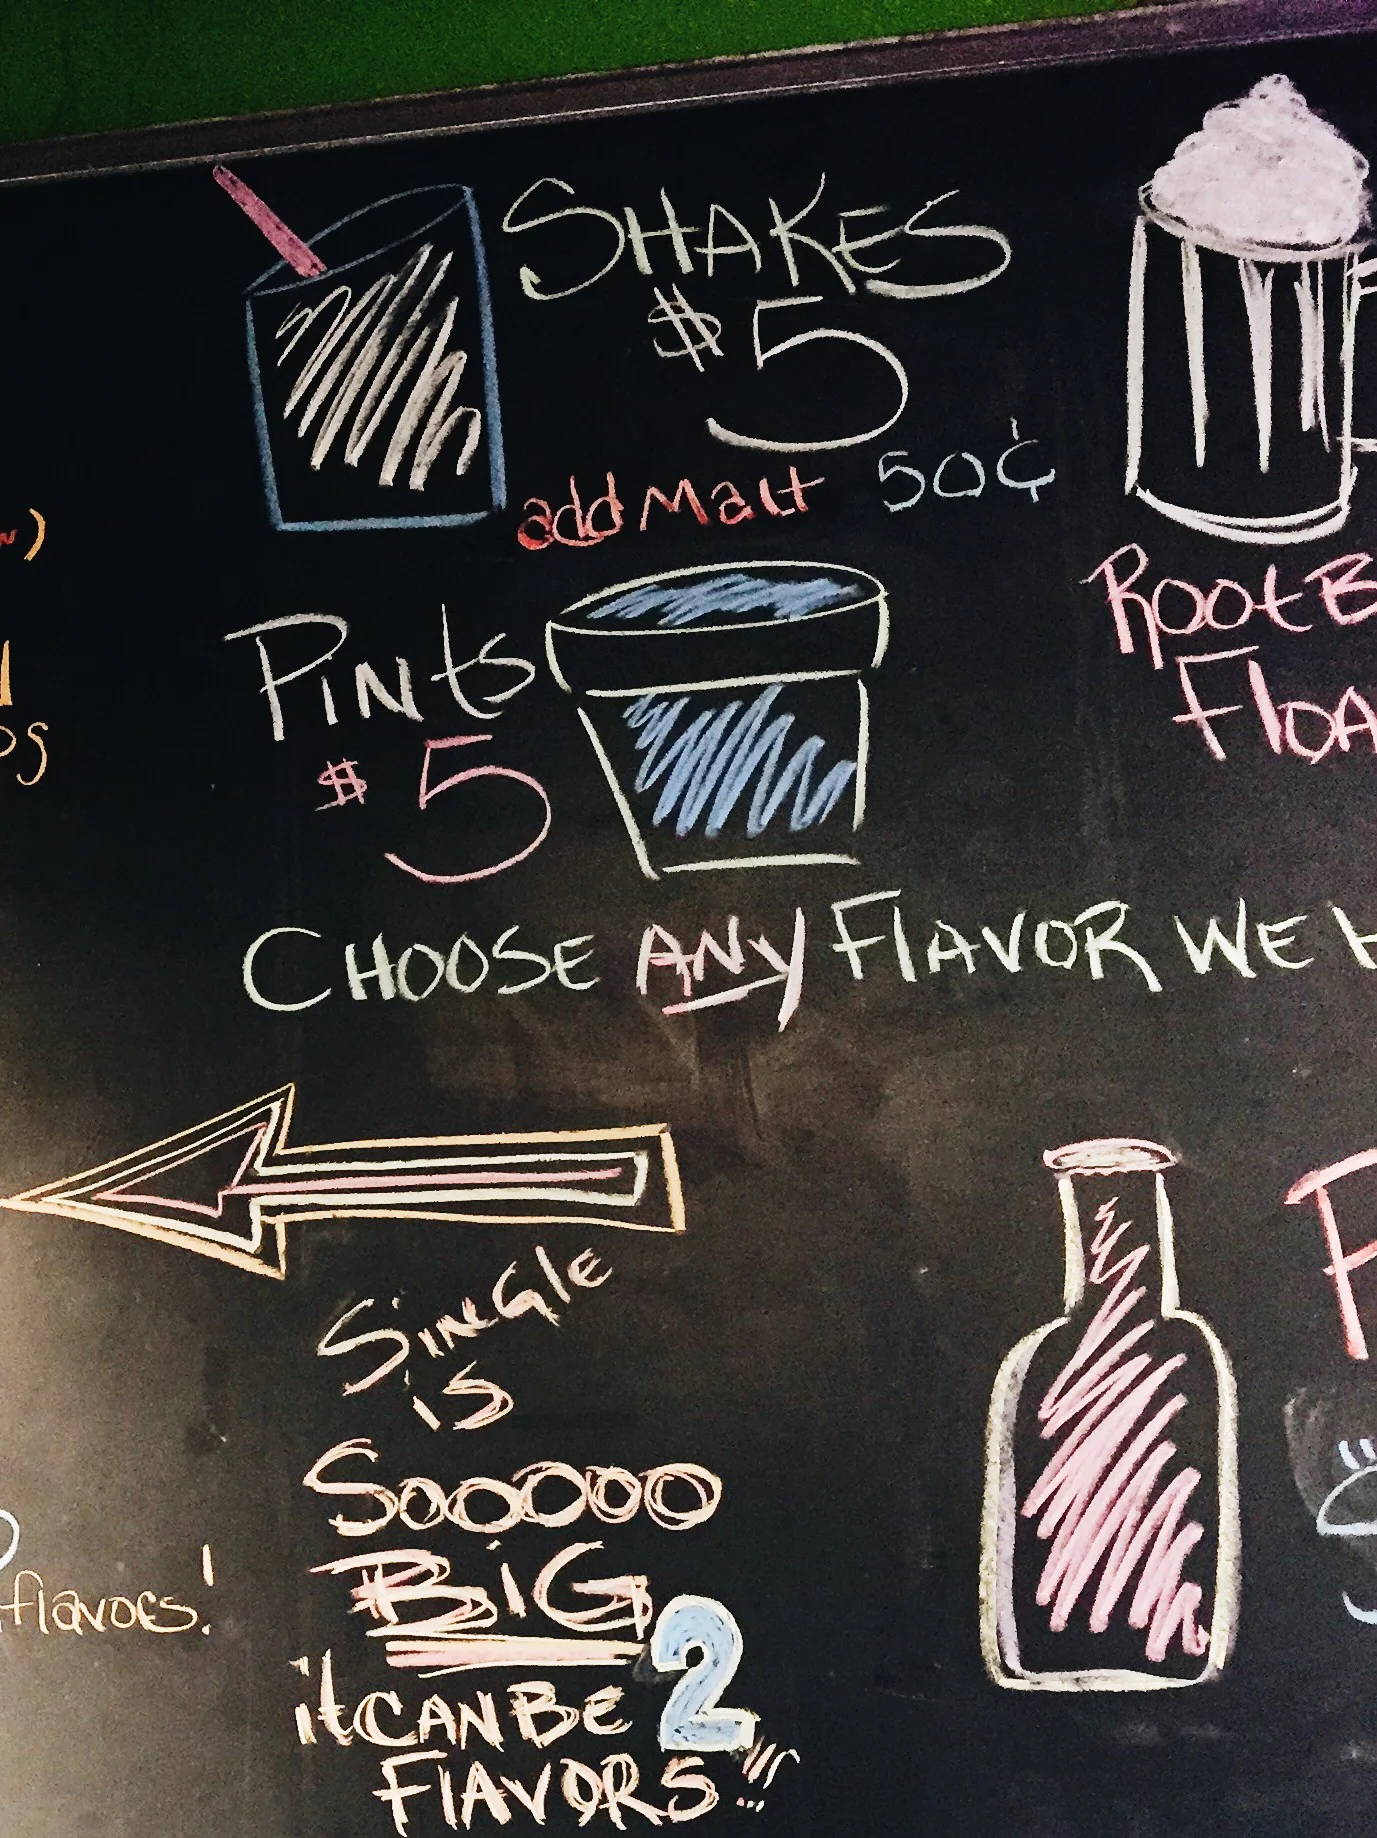 SHAKES
$5
add Malt 50¢
Root B
Floa
Pints
$5
CHOOSE ANY FLAVOR WE H
SinGle
is
Sooooo
BiG
it CAN BE 2
FlAVORS!!!
flavors!